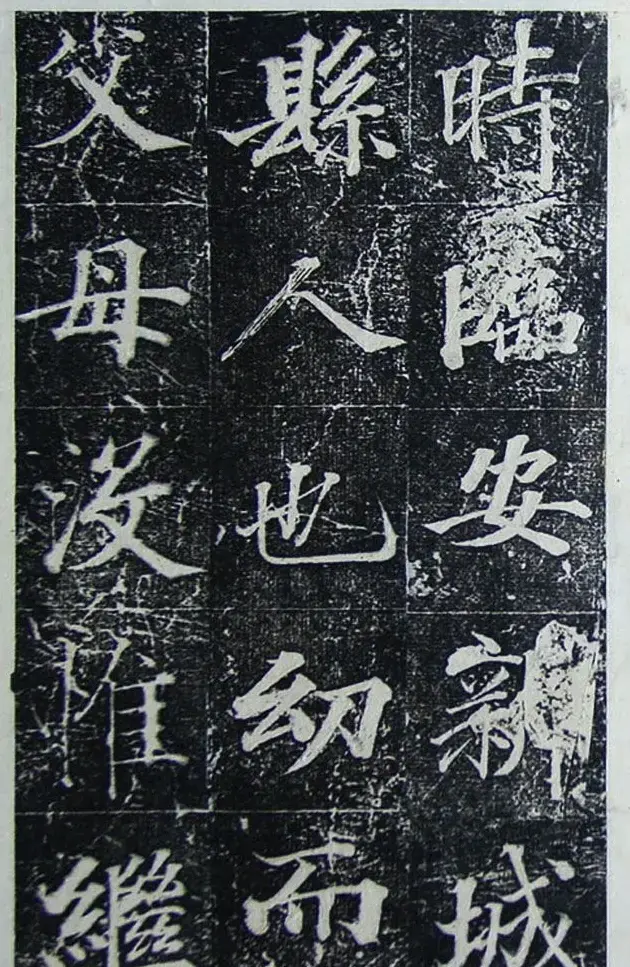 時臨安新城
縣人也幼而
父母没惟繼